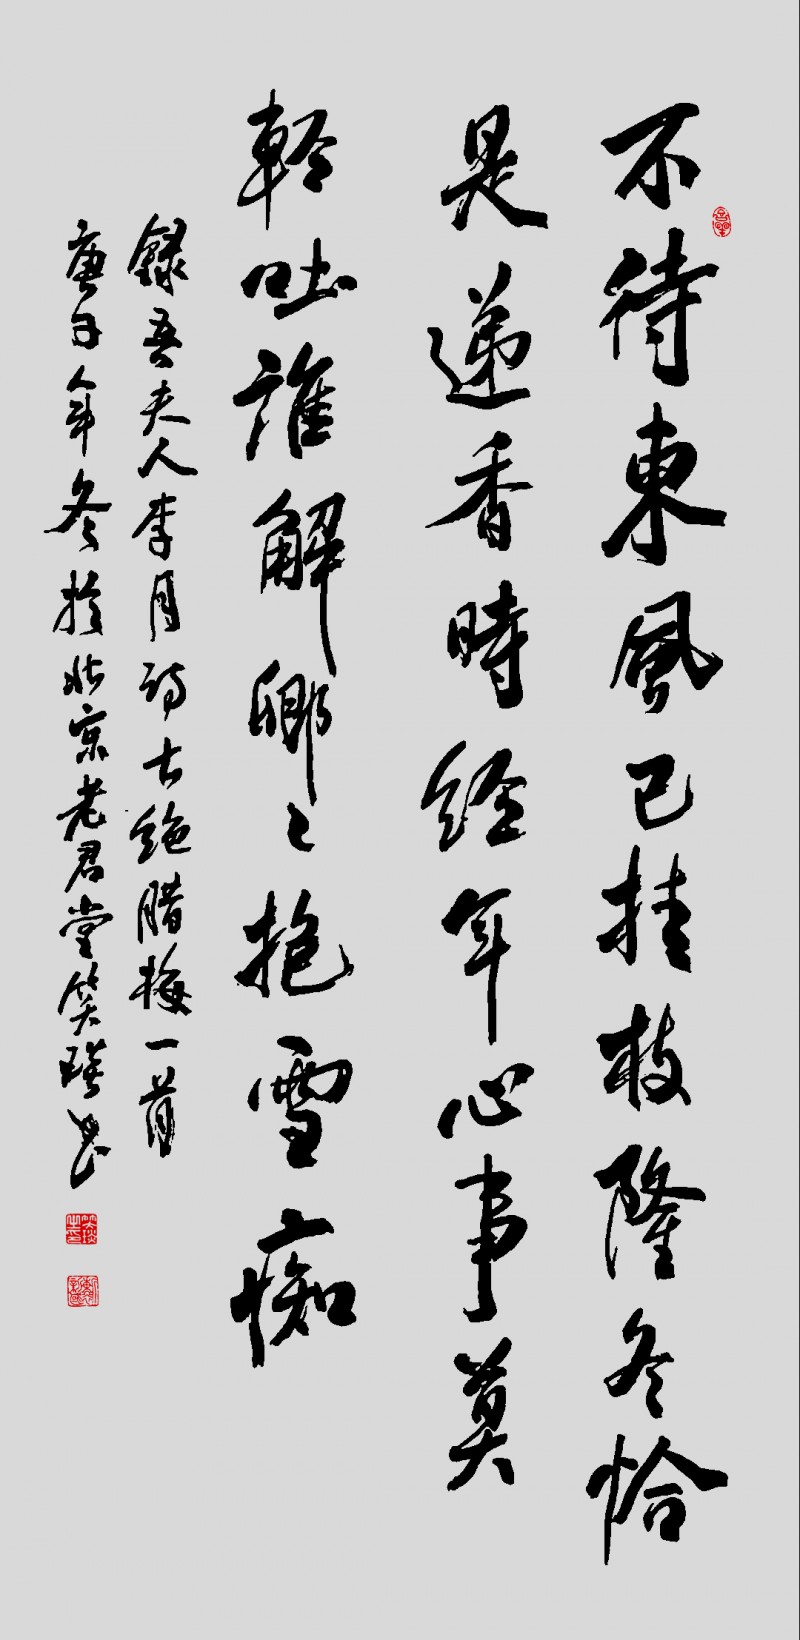 不待東風已挂枝隆冬恰
是递香時经年心事莫
輕吐誰解卿々抱雪痴
錄吾夫人李月诗七絶腊梅一首
庚子年冬於北京老君堂笑書